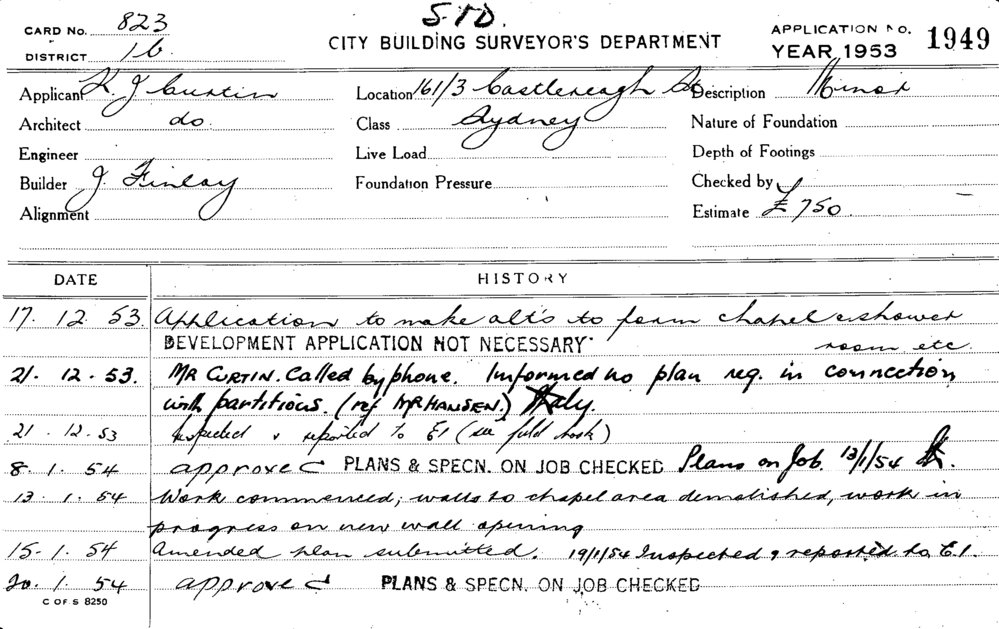 S.T.D.
CARD No. 823
CITY BUILDING SURVEYOR'S DEPARTMENT
APPLICATION No. 1949
DISTRICT 16
YEAR 1953
Applicant K J Curtin Location 161/3 Castlereagh St Description Minor
Architect do. Class Sydney Nature of Foundation
Engineer Live Load Depth of Footings
Builder J. Finlay Foundation Pressure Checked by
Alignment Estimate £750
DATE HISTORY
17. 12. 53. Application to make alt's to form chapel & shower
DEVELOPMENT APPLICATION NOT NECESSARY room etc.
21. 12. 53. MR CURTIN. Called by phone. Informed no plan req. in connection
with partitions. (ref MR HANSEN.)
21. 12. 53 Inspected & reported to E1 (see field book)
8. 1. 54 approved PLANS & SPECN. ON JOB CHECKED Plans on Job. 13/1/54
13. 1. 54 Work commenced; walls to chapel area demolished, work in
progress on new wall opening
15. 1. 54 Amended plan submitted. 19/1/54 Inspected & reported to E.1.
20. 1. 54 approved PLANS & SPECN. ON JOB CHECKED
C OF S 8250